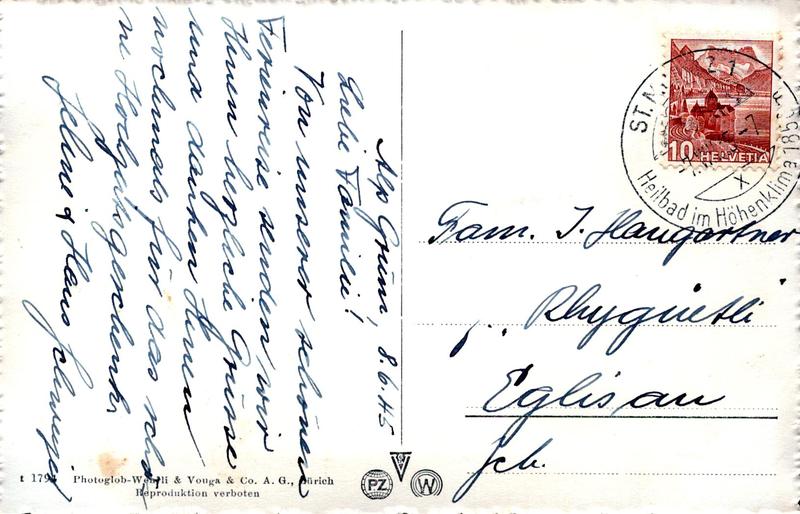 Alp Grüm, 8.6.45
Liebe Familie!
Von unserer schönen
Ferienreise senden wir
Ihnen herzliche Grüsse
und danken Ihnen
nochmals für das schö-
ne Hochzeitsgeschenk.
Hans
10 HELVETIA
ST. M
Heilbad im Höhenklima
Fam. J. Haugartner
Rhygüetli
Eglisau
Zch.
Photoglob-Wehrli & Vouga & Co. A. G., Zürich
Reproduktion verboten
PZ
W